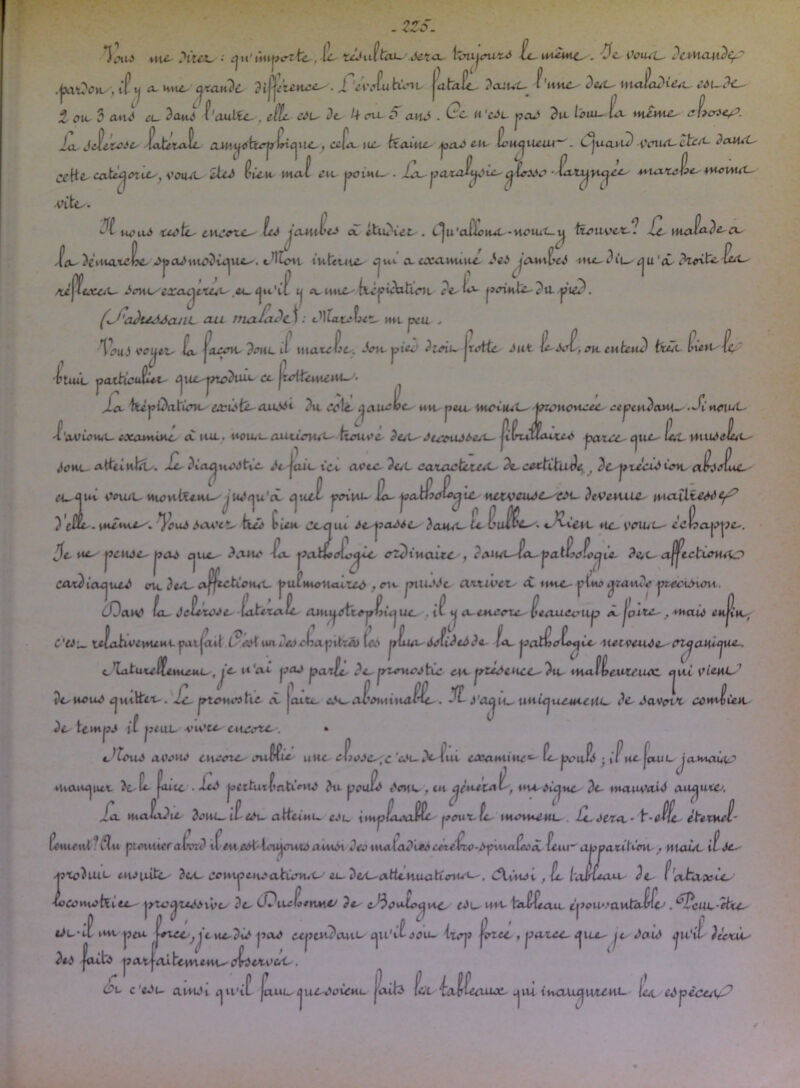 - 225 -
Vous me direz : qu'importe, le résultat sera toujours le même. Je vous demande
pardon, il y a une grande différence. L'évolution fatale dans l'une des maladies est de
2 ou 3 ans et dans l'autre, elle est de 4 ou 5 ans. Ce n'est pas du tout la même chose.
La sclérose latérale amyotrophique, cela ne traine pas en longueur. Quand vous êtes dans
cette catégorie, vous êtes bien mal en point. La paralysie glosso-laryngée marche moins
vite.
Il nous reste encore les jambes à étudier. Qu'allons-nous-y trouver ? Le malade a
la démarche spasmodique. Mon interne qui a examiné ses jambes me dit qu'à droite les
réflexes sont exagérés et qu'il y a une trépidation de la pointe du pied.
(S'adressant au malade) : Marchez un peu.
Vous voyez la façon dont il marche. Son pied droit frotte sur le sol, on entend très bien le
bruit particulier que produit ce frottement.
La trépidation existe aussi du côté gauche un peu moins prononcée cependant. Si nous
l'avions examiné à nu, nous aurions trouvé des secousses fibrillaires parce que les muscles
sont atteints. Le diagnostic se fait ici avec des caractères de certitude, de précision absolue
et qui vous montrent jusqu'à quel point la pathologie nerveuse est devenue maîtresse
d'elle-même. Vous savez très bien ce qui se passe dans le bulbe. Rien ne vous échappe.
Je ne pense pas que dans la pathologie ordinaire, dans la pathologie des affections
cardiaques ou des affections pulmonaires, on puisse arriver à une plus grande précision.
Dans la sclérose latérale amyotrophique, il y a encore beaucoup à faire, mais enfin,
c'est relativement parfait. C'est un des chapitres les plus solides de la pathologie nerveuse organique.
Naturellement, je n'ai pas parlé de pronostic en présence du malheureux qui vient
de nous quitter. Le pronostic à faire est abominable. Il s'agit uniquement de savoir combien
de temps il peut vivre encore.
Nous avons encore oublié une chose, c'est de lui examiner le pouls ; il ne faut jamais
manquer de le faire. Les perturbations du pouls sont, en général, un signe de mauvais augure.
La maladie dont il est atteint est implacable pour le moment. Le sera-t-elle éternel-
lement ? Au premier abord il en est toujours ainsi des maladies cérébro-spinales à leur apparition, mais il se
produit ensuite des compensations et des atténuations. Ainsi, le tableau de l'ataxie
locomotrice progressive de Duchenne de Boulogne est un tableau épouvantable. Peut-être
est-il un peu forcé, je ne dis pas cependant qu'il soit trop forcé, parce que je sais qu'il décrit
des faits parfaitement observés.
Et c'est ainsi qu'il faut que soient faits les tableaux qui inaugurent les espèces